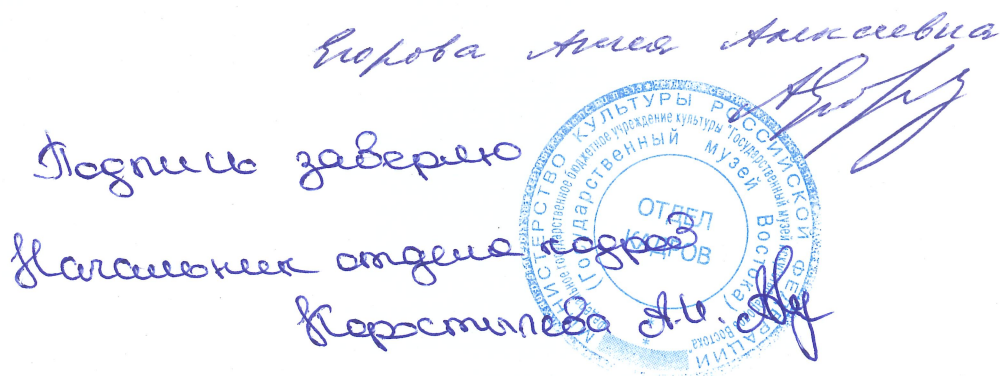 Егорова Анна Алексеевна
Подпись заверяю
Начальник отдела кадров
Коростылева А.И.
МИНИСТЕРСТВО КУЛЬТУРЫ РОССИЙСКОЙ ФЕДЕРАЦИИ
государственное бюджетное учреждение культуры "Государственный музей Востока"
(Государственный музей Востока)
ОТДЕЛ
КАДРОВ